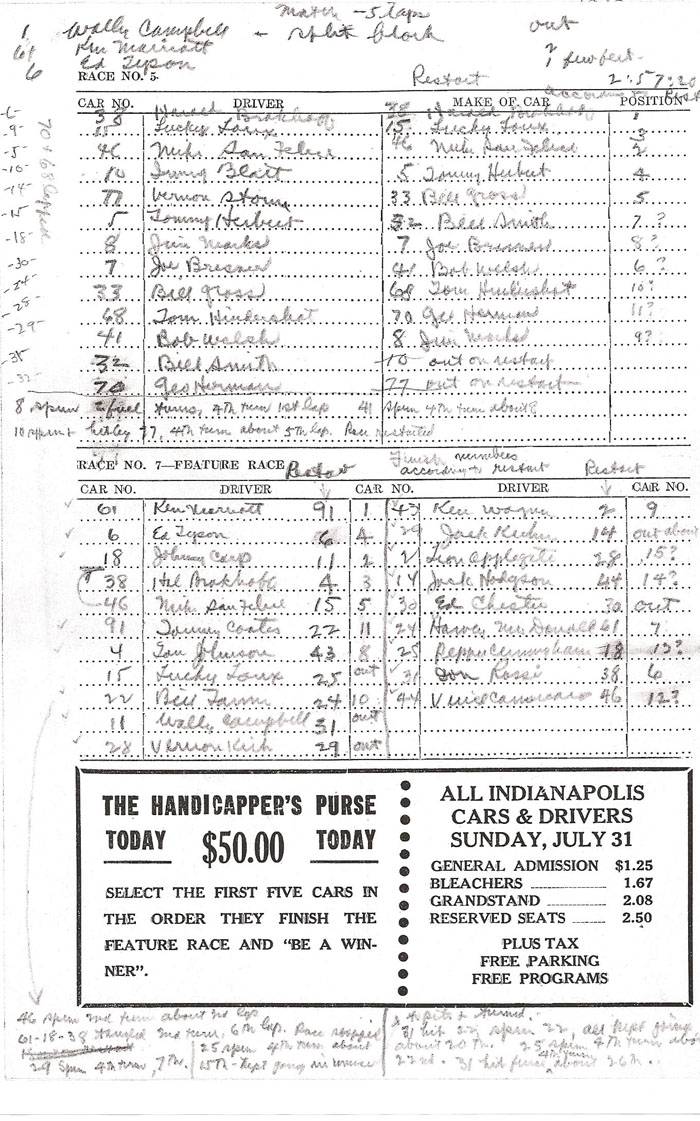 Match - 5 laps
1 Wally Campbell - split block out
61 Ken Marriott
6 Ed Tyson 2, few feet
RACE NO. 5 Restart 2:57:20
according to Rest
CAR NO. DRIVER MAKE OF CAR POSITION
70 + 68 lapped
-6- 38 38 1
-9- Lucky Loux 15 Lucky Loux 3
-5- 46 Mike San Felice 46 Mike San Felice 2
-10- 10 Irving Blatt 5 Tommy Herbert 4
-14- 77 Vernon 33 Bill Gross 5
-15 5 Tommy Herbert 32 Bill Smith 7?
-18- 8 Jim Marks 7 Joe 8?
-30- 7 Joe 41 Bob Welsh 6?
-24- 33 Bill Gross 68 Tom Hindershot 10?
-28- 68 Tom Hindershot 70 Geo Herman 11?
-29- 41 Bob Welsh 8 Jim Marks 9?
-35 32 Bill Smith 10 out on restart
-32- 70 Geo Herman 77 out on restart
8 spun turns, 4th turn 1st lap 41 spun 4th turn about 8
10 spun + hit by 77, 4th turn about 5th lap. Race restarted
RACE NO. 7—FEATURE RACE Restart Finish numbers according to restart Restart
CAR NO. DRIVER CAR NO. DRIVER CAR NO.
61 Ken Marriott 91 1 43 Ken Wagner 2 9
6 Ed Tyson 6 4 29 Jack 14 out about
18 Johnny Carp 11 2 2 Leon Applegate 28 15?
38 Hal 4 3 14 Jack Hodgson 44 14?
46 Mike San Felice 15 5 30 Ed Chester 30 out
91 Tommy Coates 22 11 24 Harvey McDonald 61 7
4 Tom Johnson 43 8 25 Pepper Cunningham 18 13?
15 Lucky Loux 25 out 31 Don Rossi 38 6
22 Bill 24 10 44 46 12?
11 Wally Campbell 31 out
28 Vernon 29 out
THE HANDICAPPER'S PURSE
TODAY $50.00 TODAY
SELECT THE FIRST FIVE CARS IN
THE ORDER THEY FINISH THE
FEATURE RACE AND "BE A WIN-
NER".
ALL INDIANAPOLIS
CARS & DRIVERS
SUNDAY, JULY 31
GENERAL ADMISSION $1.25
BLEACHERS 1.67
GRANDSTAND 2.08
RESERVED SEATS 2.50
PLUS TAX
FREE PARKING
FREE PROGRAMS
46 spun 2nd turn about 2nd lap
61-18-38 tangled 2nd turn, 6th lap. Race stopped
29 Spun 4th turn, 7th.
25 spun 4th turn about
15th - kept going in
31 hit 22, spun 22, all kept going,
about 20th. 25 spun 4th turn abo
22nd. 31 hit fence 4th turn about 26th.